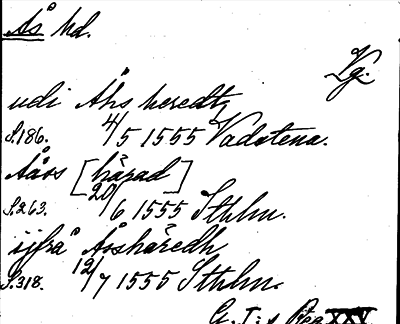 Ås hd.
Vg.
udi Åhs heredt,
S.186. 4/5 1555 Vadstena.
Aårs [härad]
S.263. 20/6 1555 Sthlm.
ifrå Åsshäredh
S.318. 12/7 1555 Sthlm.
G.I:s Reg XXV